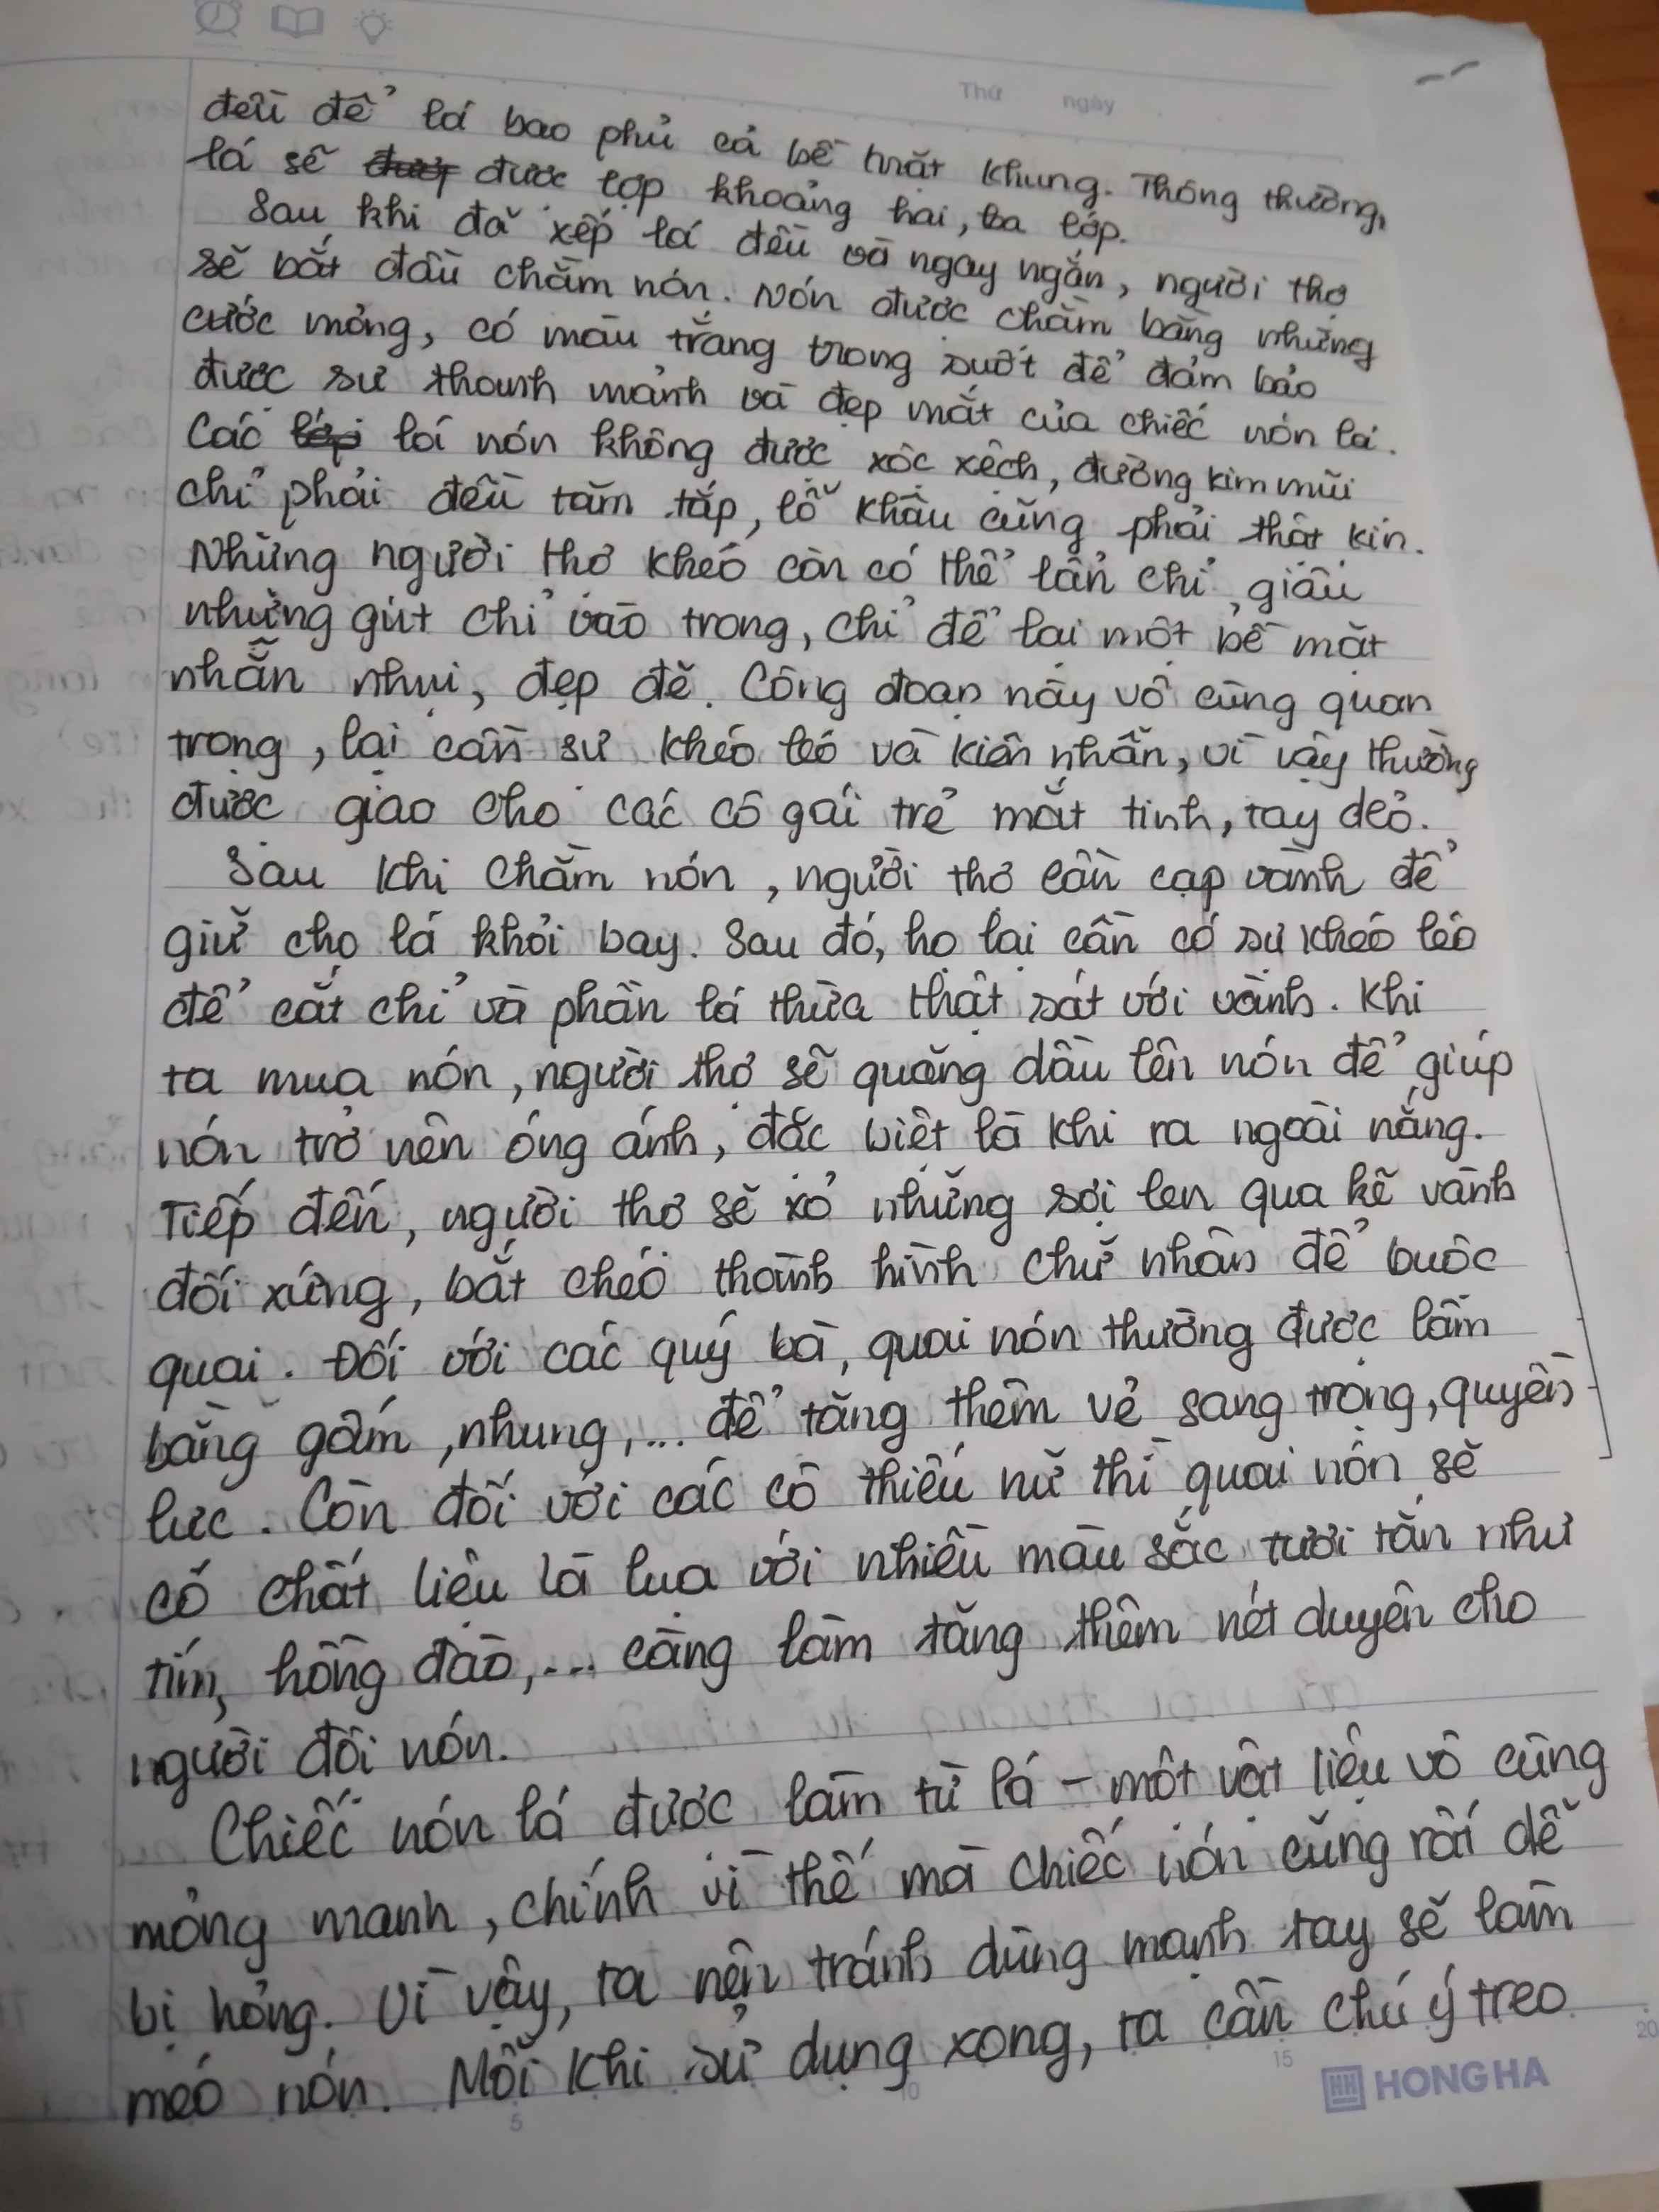 Thứ ngày
đều để lá bao phủ cả bề mặt khung. Thông thường,
lá sẽ được lợp khoảng hai, ba lớp.
Sau khi đã xếp lá đều và ngay ngắn, người thợ
sẽ bắt đầu chằm nón. Nón được chằm bằng những
cước mỏng, có màu trắng trong suốt để đảm bảo
được sự thanh mảnh và đẹp mắt của chiếc nón lá.
Các lá nón không được xộc xệch, đường kim mũi
chỉ phải đều tăm tắp, lỗ khâu cũng phải thật kín.
Những người thợ khéo còn có thể lẩn chỉ, giấu
những gút chỉ vào trong, chỉ để lại một bề mặt
nhẵn nhụi, đẹp đẽ. Công đoạn này vô cùng quan
trọng, lại cần sự khéo léo và kiên nhẫn, vì vậy thường
được giao cho các cô gái trẻ mắt tinh, tay dẻo.
Sau khi chằm nón, người thợ cần cạp vành để
giữ cho lá khỏi bay. Sau đó, họ lại cần có sự khéo léo
để cắt chỉ và phần lá thừa thật sát với vành. Khi
ta mua nón, người thợ sẽ quang dầu lên nón để giúp
nón trở nên óng ánh, đặc biệt là khi ra ngoài nắng.
Tiếp đến, người thợ sẽ xỏ những sợi len qua kẽ vành
đối xứng, bắt chéo thành hình chữ nhân để buộc
quai. Đối với các quý bà, quai nón thường được làm
bằng gấm, nhung,... để tăng thêm vẻ sang trọng, quyền
lực. Còn đối với các cô thiếu nữ thì quai nón sẽ
có chất liệu là lụa với nhiều màu sắc tươi tắn như
tím, hồng đào,... càng làm tăng thêm nét duyên cho
người đội nón.
Chiếc nón lá được làm từ lá - một vật liệu vô cùng
mỏng manh, chính vì thế mà chiếc nón cũng rất dễ
bị hỏng. Vì vậy, ta nên tránh dùng mạnh tay sẽ làm
méo nón. Mỗi khi sử dụng xong, ta cần chú ý treo
5 10 15 20
HONG HA